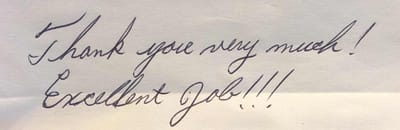 Thank you very much!
Excellent Job!!!